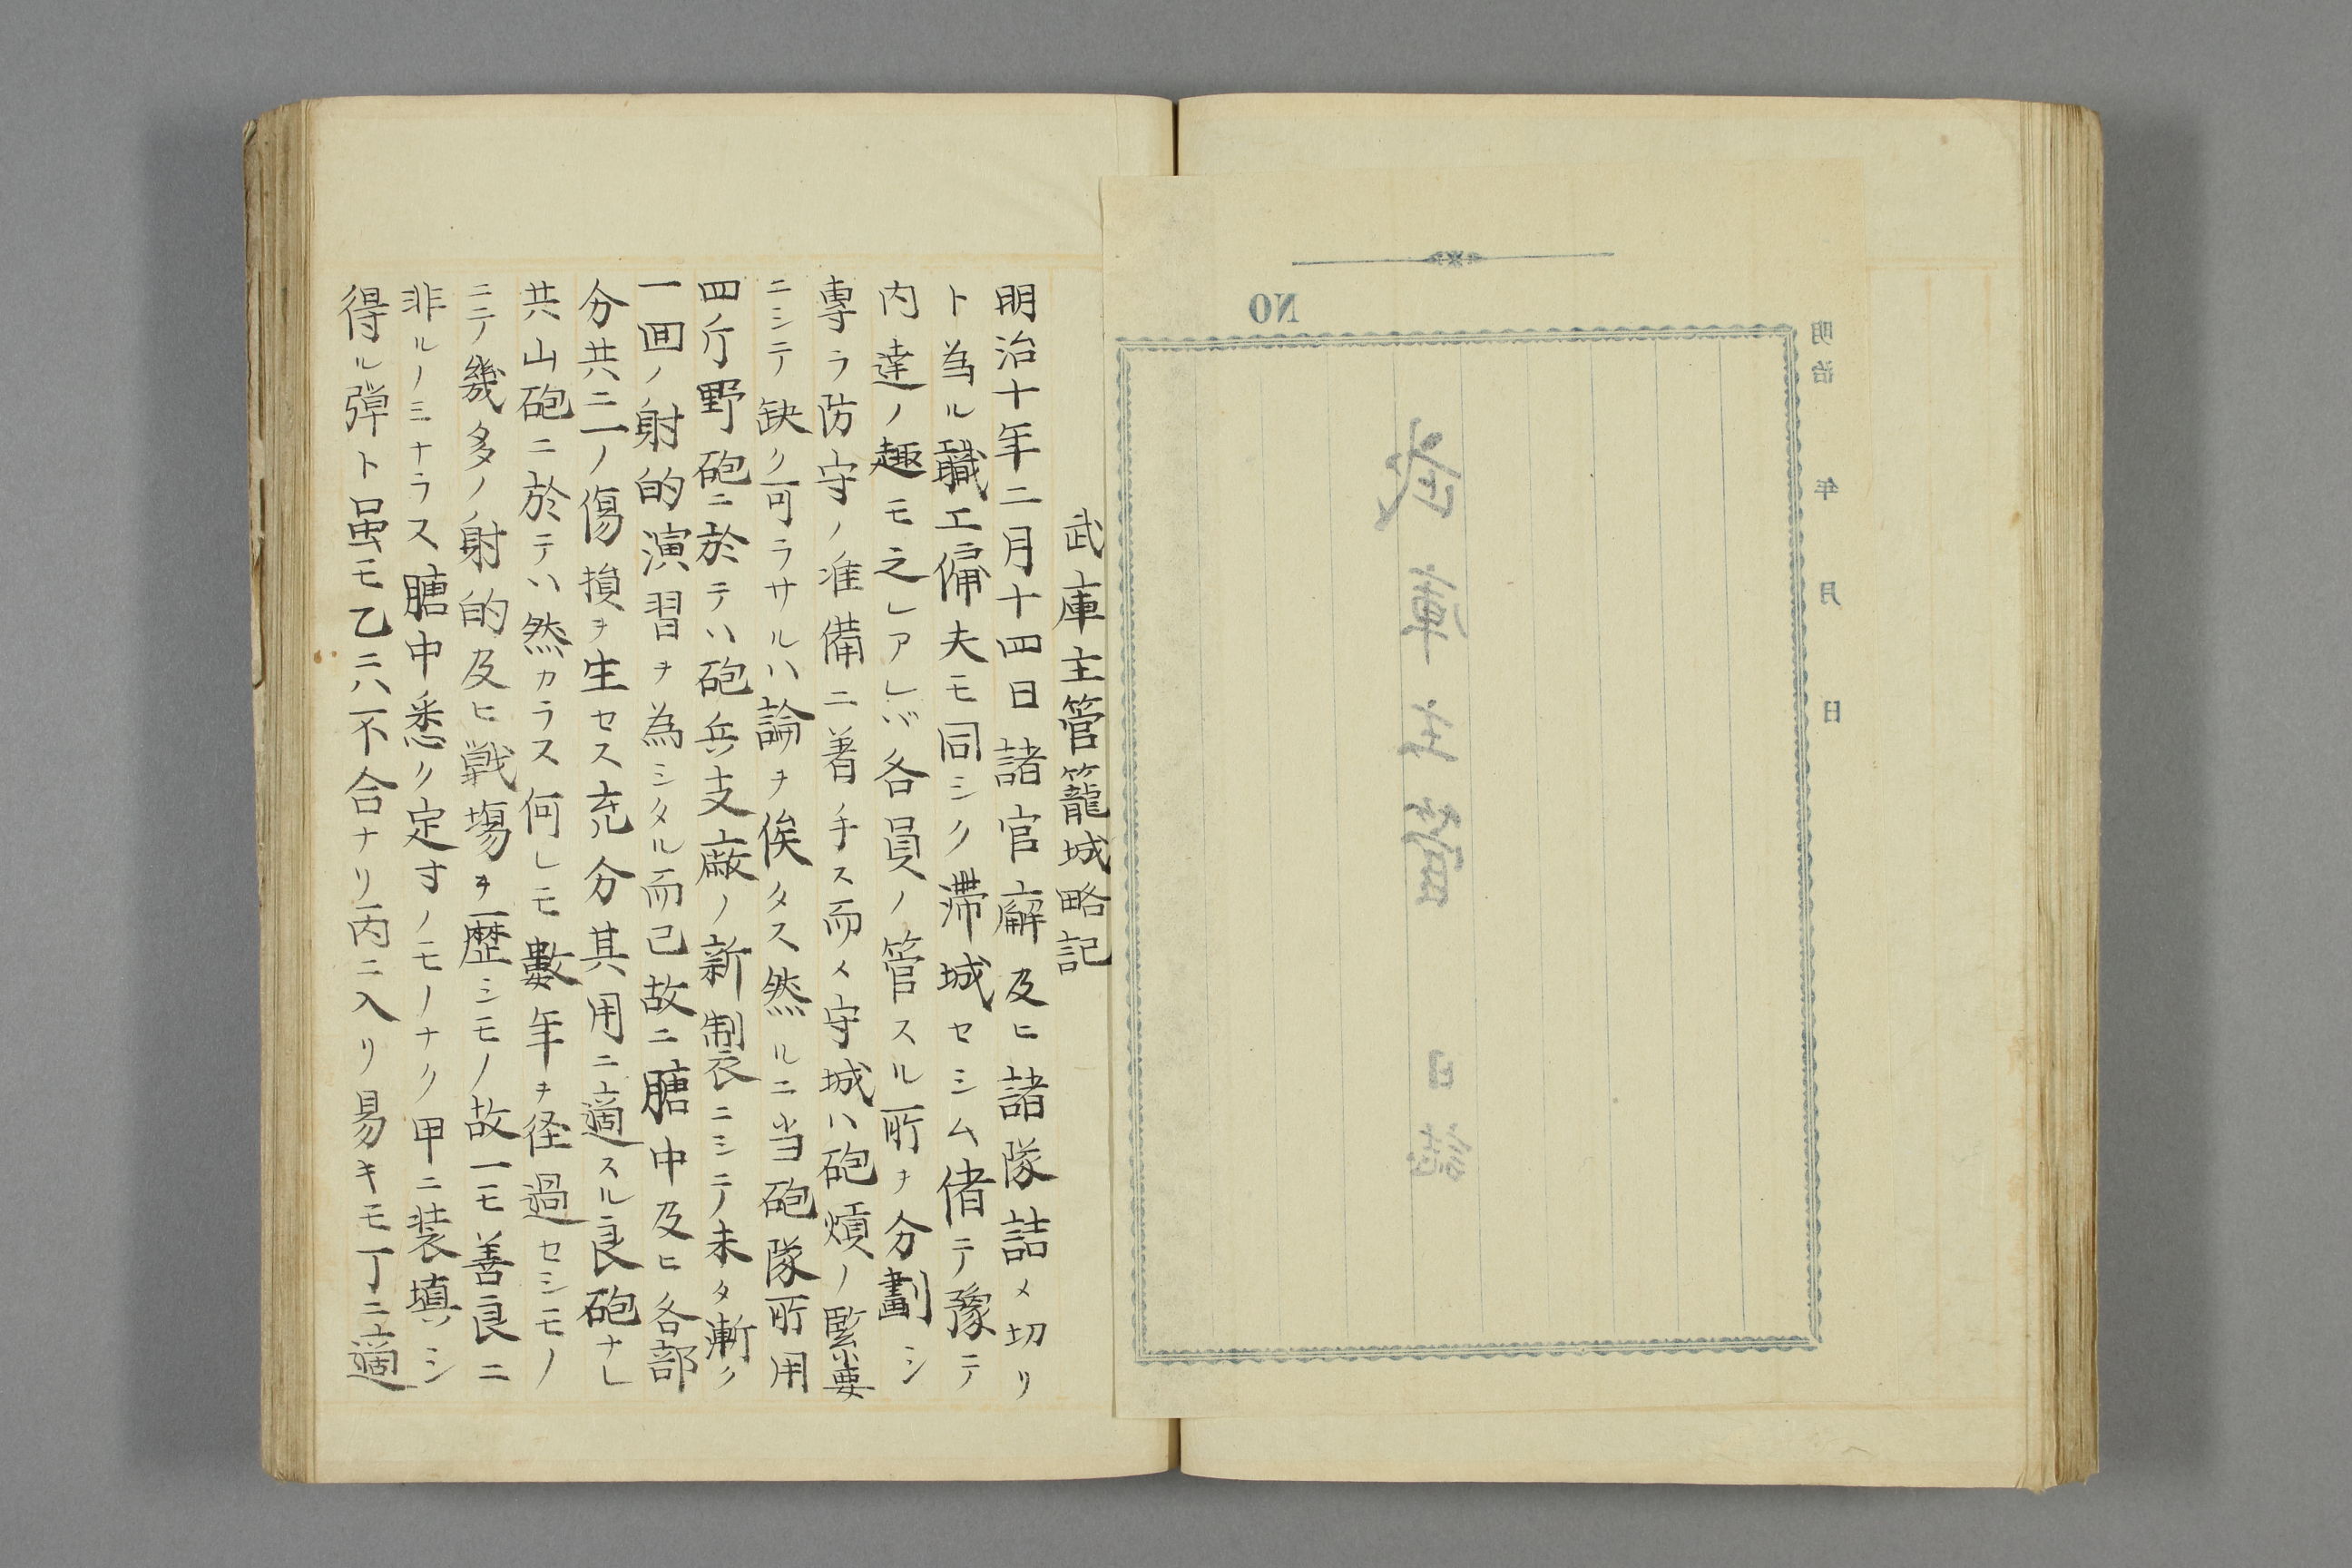 NO
明治　年　月　日
武庫主管　日誌
武庫主管籠城略記
明治十年二月十四日諸官廨及ヒ諸隊詰メ切リ
ト為ル職工傭夫モ同シク滞城セシム偖テ豫テ
内達ノ趣モ之レアレバ各員ノ管スル所ヲ分劃シ
専ラ防守ノ准備ニ著手ス而メ守城ハ砲熕ノ緊要
ニシテ缺ク可ラサルハ論ヲ俟タス然ルニ当砲隊所用
四斤野砲ニ於テハ砲兵支廠ノ新製ニシテ未タ漸ク
一回ノ射的演習ヲ為シタル而已故ニ膅中及ヒ各部
分共ニ一ノ傷損ヲ生セス充分其用ニ適スル良砲ナレ
共山砲ニ於テハ然カラス何レモ數年ヲ径過セシモノ
ニテ幾多ノ射的及ヒ戦場ヲ歴シモノ故一モ善良ニ
非ルノミナラス膅中悉ク定寸ノモノナク甲ニ装填シ
得ル弾ト虽モ乙ニハ不合ナリ丙ニ入リ易キモ丁ニ適